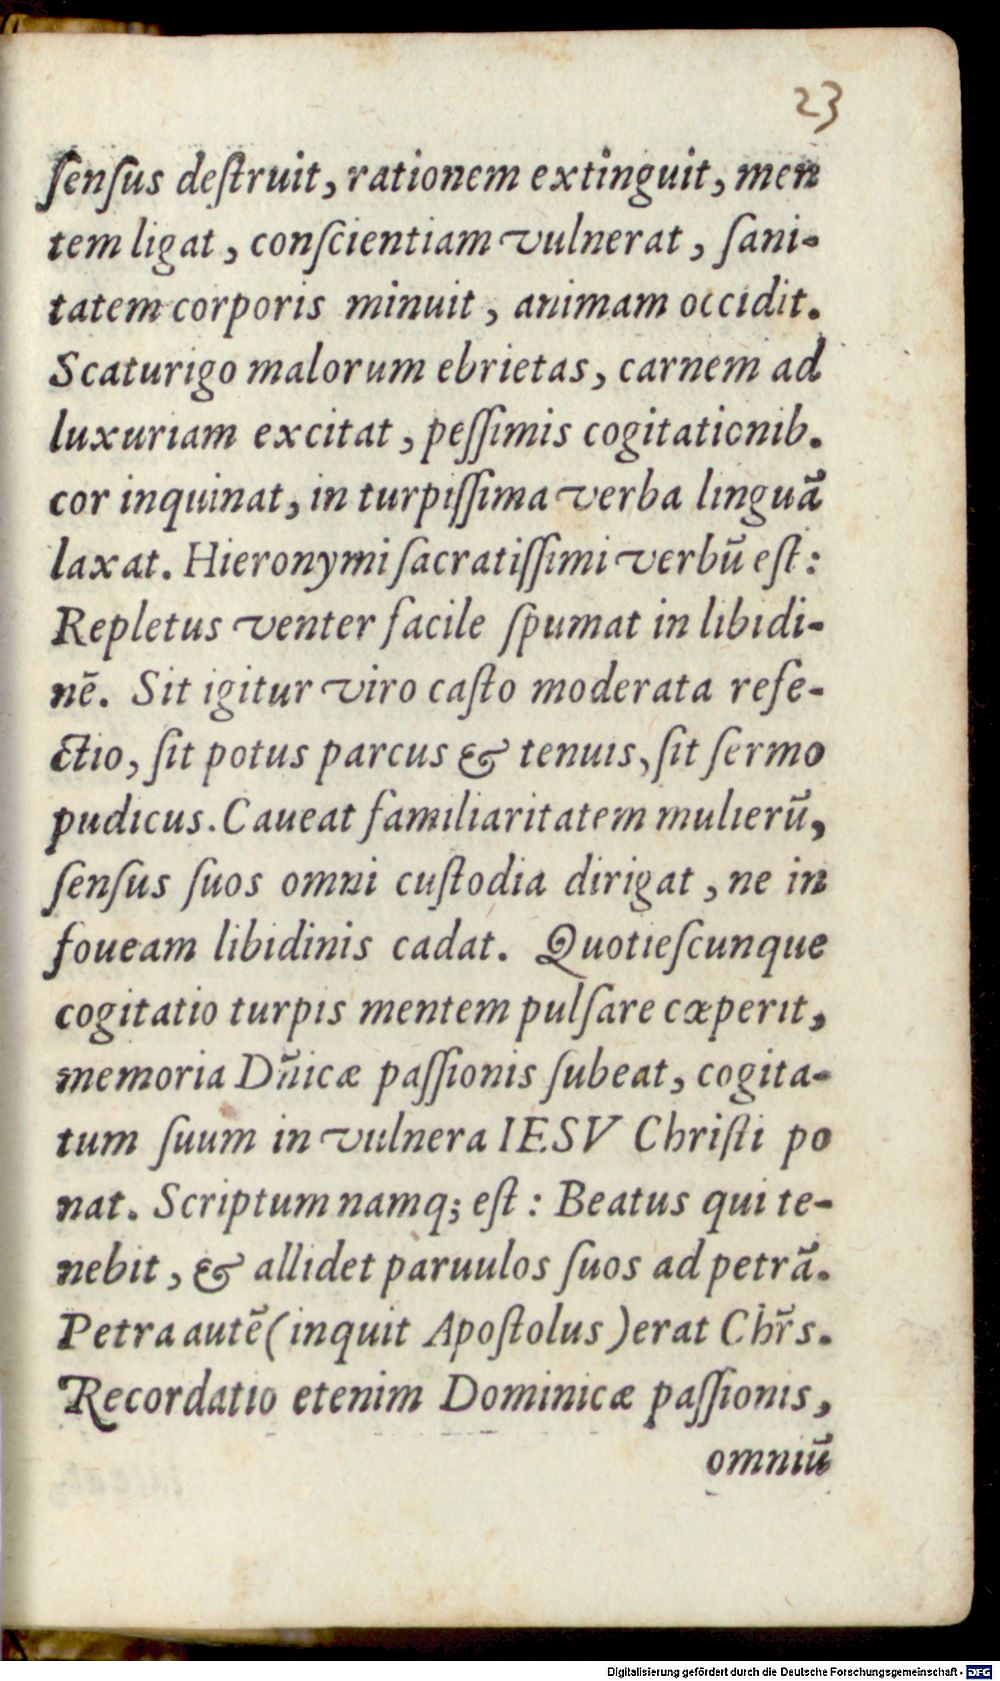 23
ſenſus deſtruit, rationem extinguit, men
tem ligat, conſcientiam vulnerat, ſani-
tatem corporis minuit, animam occidit.
Scaturigo malorum ebrietas, carnem ad
luxuriam excitat, peſſimis cogitationib.
cor inquinat, in turpiſſima verba linguā
laxat. Hieronymi ſacratiſſimi verbū eſt:
Repletus venter facile ſpumat in libidi-
nē. Sit igitur viro caſto moderata refe-
ctio, ſit potus parcus & tenuis, ſit ſermo
pudicus. Caueat familiaritatem mulierū,
ſenſus ſuos omni cuſtodia dirigat, ne in
foueam libidinis cadat. Quotieſcunque
cogitatio turpis mentem pulſare cœperit,
memoria Dn̄icæ paſſionis ſubeat, cogita-
tum ſuum in vulnera IESV Chriſti po
nat. Scriptum namq; eſt: Beatus qui te-
nebit, & allidet paruulos ſuos ad petrā.
Petra autē (inquit Apoſtolus) erat Chr̄s.
Recordatio etenim Dominicæ paſſionis,
omniū
Digitalisierung gefördert durch die Deutsche Forschungsgemeinschaft - DFG